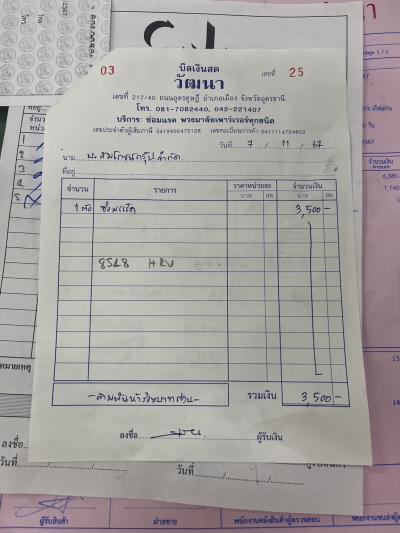 บิลเงินสด
03
วัฒนา
เลขที่ 25
เลขที่ 217/40 ถนนอุดรดุษฎี อำเภอเมือง จังหวัดอุดรธานี
โทร. 081-7082440, 042-221407
บริการ: ซ่อมแรค พวงมาลัยเพาเวอร์ทุกชนิด
เลขประจำตัวผู้เสียภาษี 3419900475128 เลขทะเบียนการค้า 0417114704852
วันที่ 7 / 11 / 67
นาม
ที่อยู่
จำนวน รายการ ราคาหน่วยละ จำนวนเงิน
บาท สต. บาท สต.
1 ตัว ซ่อมแร็ค 3,500 -
8518 HRV
- สามพันห้าร้อยบาทถ้วน - รวมเงิน 3,500 -
ลงชื่อ ผู้รับเงิน
หมายเหตุ
ลงชื่อ
วันที่ / /
วันที่ / /
ผู้รับสินค้า ฝ่ายขาย พนักงานคลังสินค้าผู้ตรวจสอบ